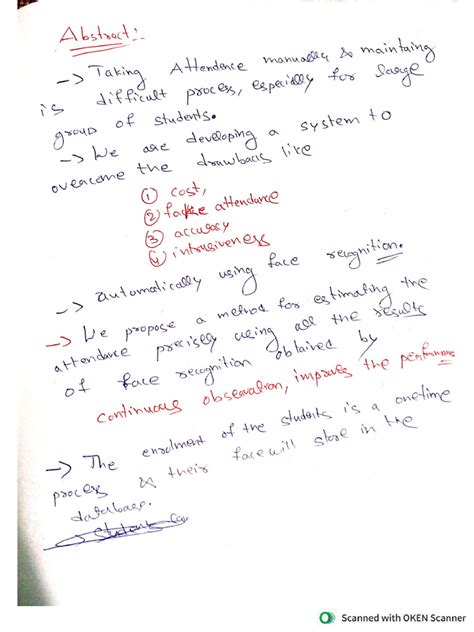 Abstract:-
-> Taking Attendence manually & maintaing
is difficult process, especially for large
group of students.
-> We are developing a system to
overcome the drawbacks like
① cost,
② fake attendance
③ accuracy
④ intrusiveness
-> automatically using face recognition.
-> We propose a method for estimating the
attendance precisely using all the results
of face recognition obtained by
continuous observation, improves the performance
-> The enrolment of the students is a onetime
process & their face will store in the
database.
Scanned with OKEN Scanner